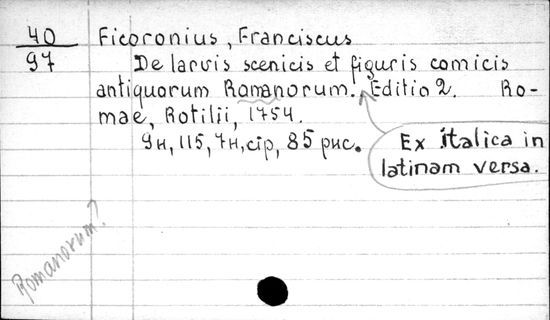 40 Ficoronius, Franciscus
97 De larvis scenicis et figuris comicis
antiquorum Romanorum. Editio 2. Ro-
mae, Rotilii, 1754.
9н, 115, 7н, cip, 85 рис.
Ex italica in
latinam versa.
Romanorum?